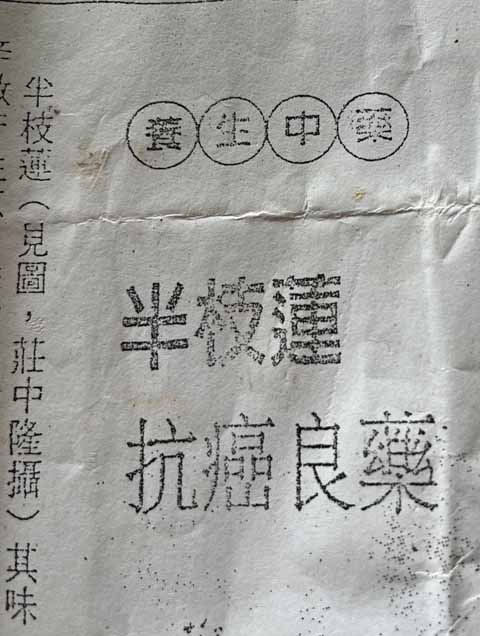 養生中藥
半枝蓮
抗癌良藥
半枝蓮（見圖，莊中隆攝）其味